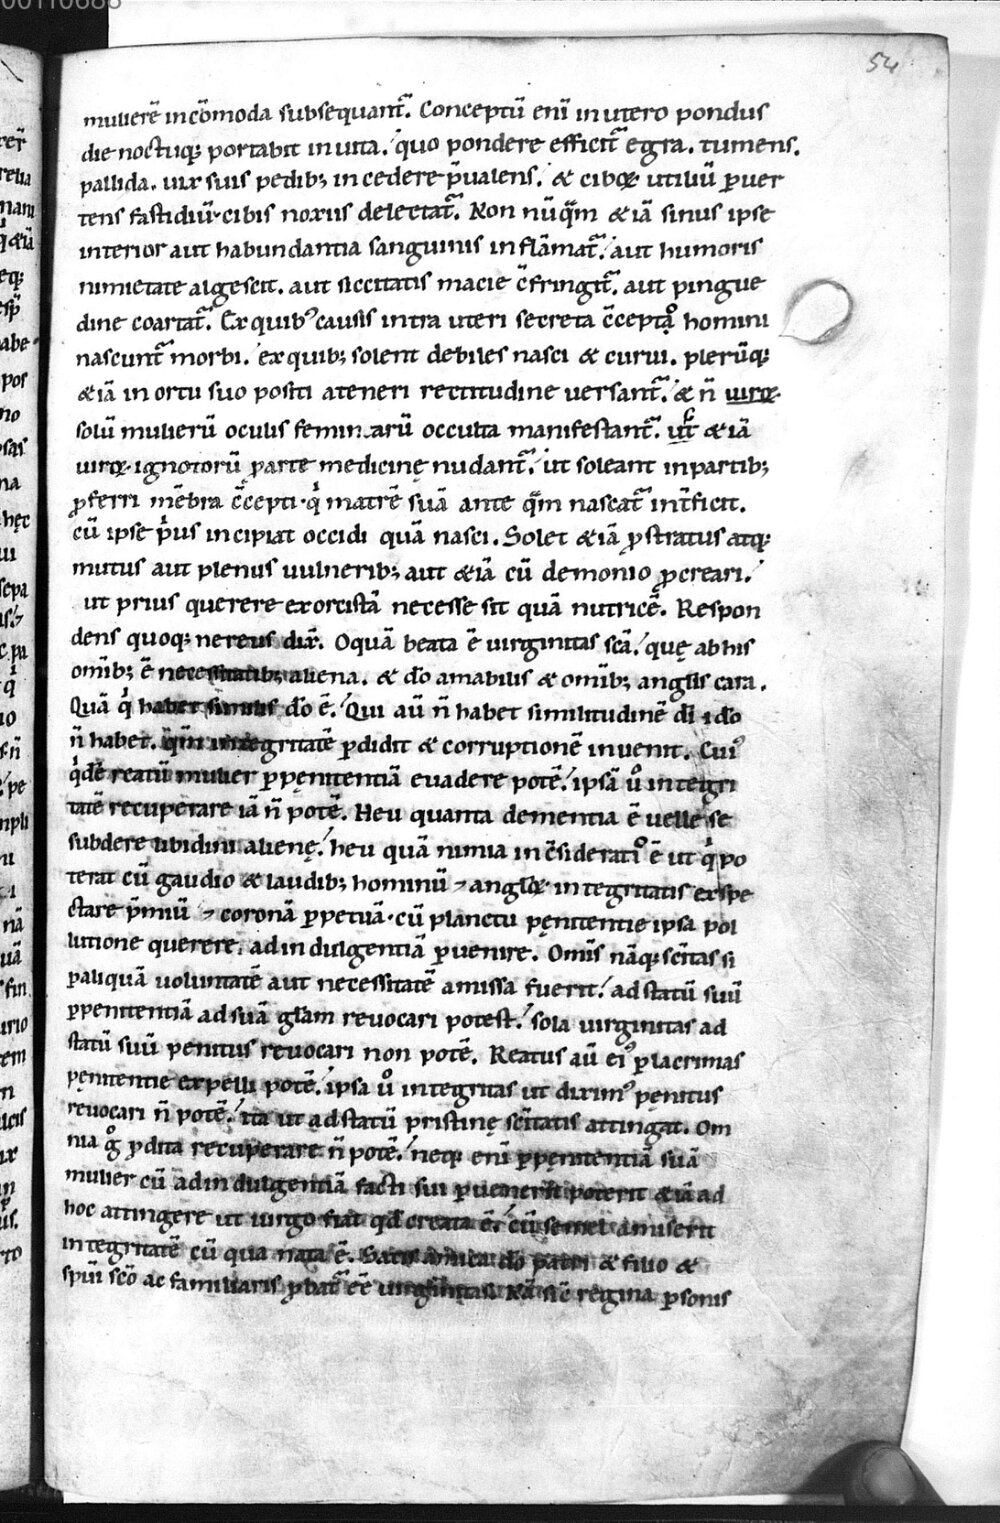 00110688
54
mulierē incōmoda subsequant᷑. Conceptū enī in utero pondus
die noctuq; portabit inuita. quo pondere efficit᷑ egra. tumens.
pallida. uix suis pedib; incedere p̄ualens. & ciboꝝ utiliū ꝑuer
tens fastidiū. cibis noxiis delectat᷑. Non nūq̄m &iā sinus ipse
interior aut habundantia sanguinis inflāmat᷑. aut humoris
nimietate algescit. aut siccitatis macie c̄fringit᷑. aut pingue
dine coartat᷑. Ex quibꝰ causis intra uteri secreta c̄cepto homini
nascunt᷑ morbi. ex quib; solent debiles nasci & curui. plerūq;
&iā in ortu suo positi a teneri rectitudine uersant᷑. & n̄ uiroꝝ
solū mulierū oculis feminarū occulta manifestant᷑. ut &iā
uiroꝝ ignotorū ꝑ arte medicinę nudant᷑. ut soleant in partib;
ꝓferri mēbra c̄cepti. qͥ matrē suā ante q̄m nascat᷑ int̄ficit.
cū ipse pͥus incipiat occidi quā nasci. Solet &iā ꝓstratus atq;
mutus aut plenus uulnerib; aut &iā cū demonio ꝓcreari.
ut prius querere exorcistā necesse sit quā nutricē. Respon
dens quoq; nereus dix̄. O quā beata ē uirginitas sc̄a. quę ab his
om̄ib; ē necessitatib; aliena. & dō amabilis & om̄ib; angl̄is cara.
Quā qͥ habet similis dō ē. Qui aū n̄ habet similitudinē dī i dō
n̄ habet. q̄m integritatē ꝑdidit & corruptionē inuenit. Cuiꝰ
qͥdē reatū mulier ꝑ pęnitentiā euadere potē. ipsā uͦ integri
tatē recuperare iā n̄ potē. Heu quanta dementia ē uelle se
subdere libidini alienę. heu quā nimia inc̄sideratiͦ ē ut qͥ po
terat cū gaudio & laudib; hominū ⁊ angl̄oꝝ integritatis exspe
ctare p̄miū ⁊ coronā ꝑpetuā. cū planctu pęnitentie ipsa pol
lutione querere. ad indulgentiā ꝑuenire. Omīs nāq; sc̄itas si
ꝑ aliquā uoluntatē aut necessitatē amissa fuerit. ad statū suū
ꝑ penitentiā ad suā gl̄am reuocari potest. sola uirginitas ad
statū suū penitus reuocari non potē. Reatus aū eiꝰ ꝑ lacrimas
pęnitentie expelli potē. ipsa uͦ integritas ut diximꝰ pęnitus
reuocari n̄ potē. ita ut ad statū pristinę sc̄itatis attingat. Om
nia gͦ ꝑdita recuperare n̄ potē. neq; enī ꝑ pęnitentiā suā
mulier cū ad indulgentiā facti sui ꝑuenerit poterit &iā ad
hoc attingere ut uirgo fiat qd̄ creata ē. cū semel amiserit
integritatē cū qua nata ē. Satis amica dō patri & filio &
spūi sc̄o ac familiaris ꝓbat᷑ eē uirginitas. Nā sic̄ regina ꝑsonis